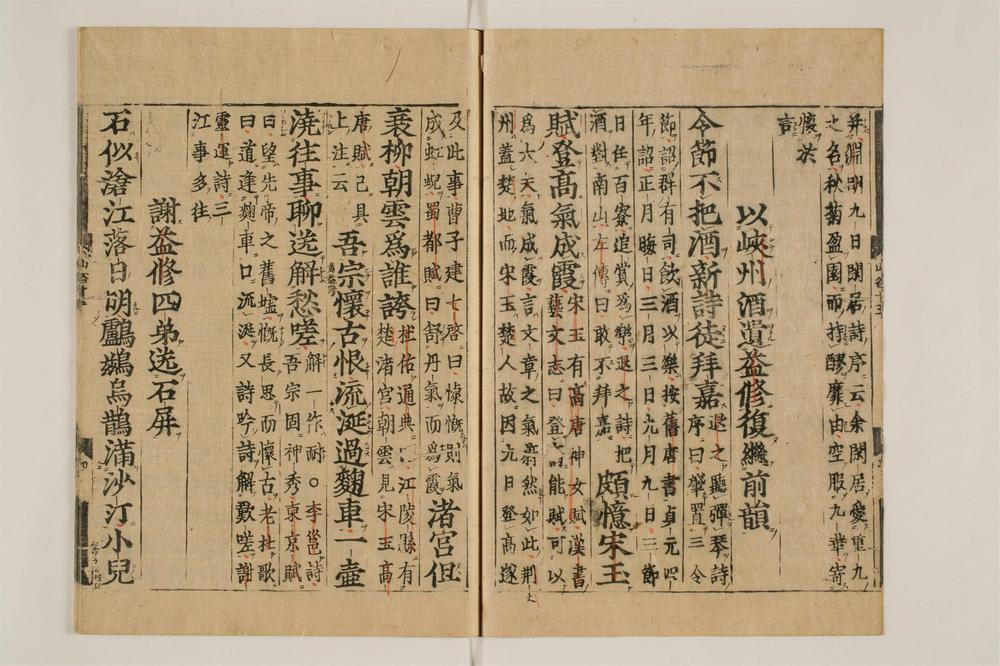 辛淵明九日閑居詩序云余閑居愛重九
之名秋菊盈園而持醪靡由空服九華寄
懷於
言
以峽州酒遺益修復繼前韻
令節不把酒新詩徒拜嘉退之聽彈琴詩
序曰肇置三令
節詔群有司飲酒以樂按舊唐書貞元四
年詔正月晦日三月三日九月九日三節
日任百寮追賞爲樂退之詩把
酒對南山左傳曰敢不拜嘉頗憶宋玉
賦登高氣成霞宋玉有高唐神女賦漢書
藝文志曰登高能賦可以
爲大夫氣成霞言文章之氣蔚然如此荆
州蓋楚地而宋玉楚人故因九日登高遂
及此事曹子建七啓曰慷慨則氣
成虹蜺蜀都賦曰舒丹氣而爲霞渚宮但
衰柳朝雲爲誰誇杜佑通典曰江陵縣有
楚渚宮朝雲見宋玉高
唐賦已具
上注云吾宗懷古恨流涎過麴車一壺
澆往事聊送解愁嗟解一作耐○李邕詩
吾宗固神秀東京賦
曰望先帝之舊墟慨長思而懷古老杜歌
曰道逢麴車口流涎又詩吟詩解歎嗟謝
靈運詩三
江事多往
謝益修四弟送石屏
石似滄江落日明鸕鷀烏鵲滿沙汀小兒